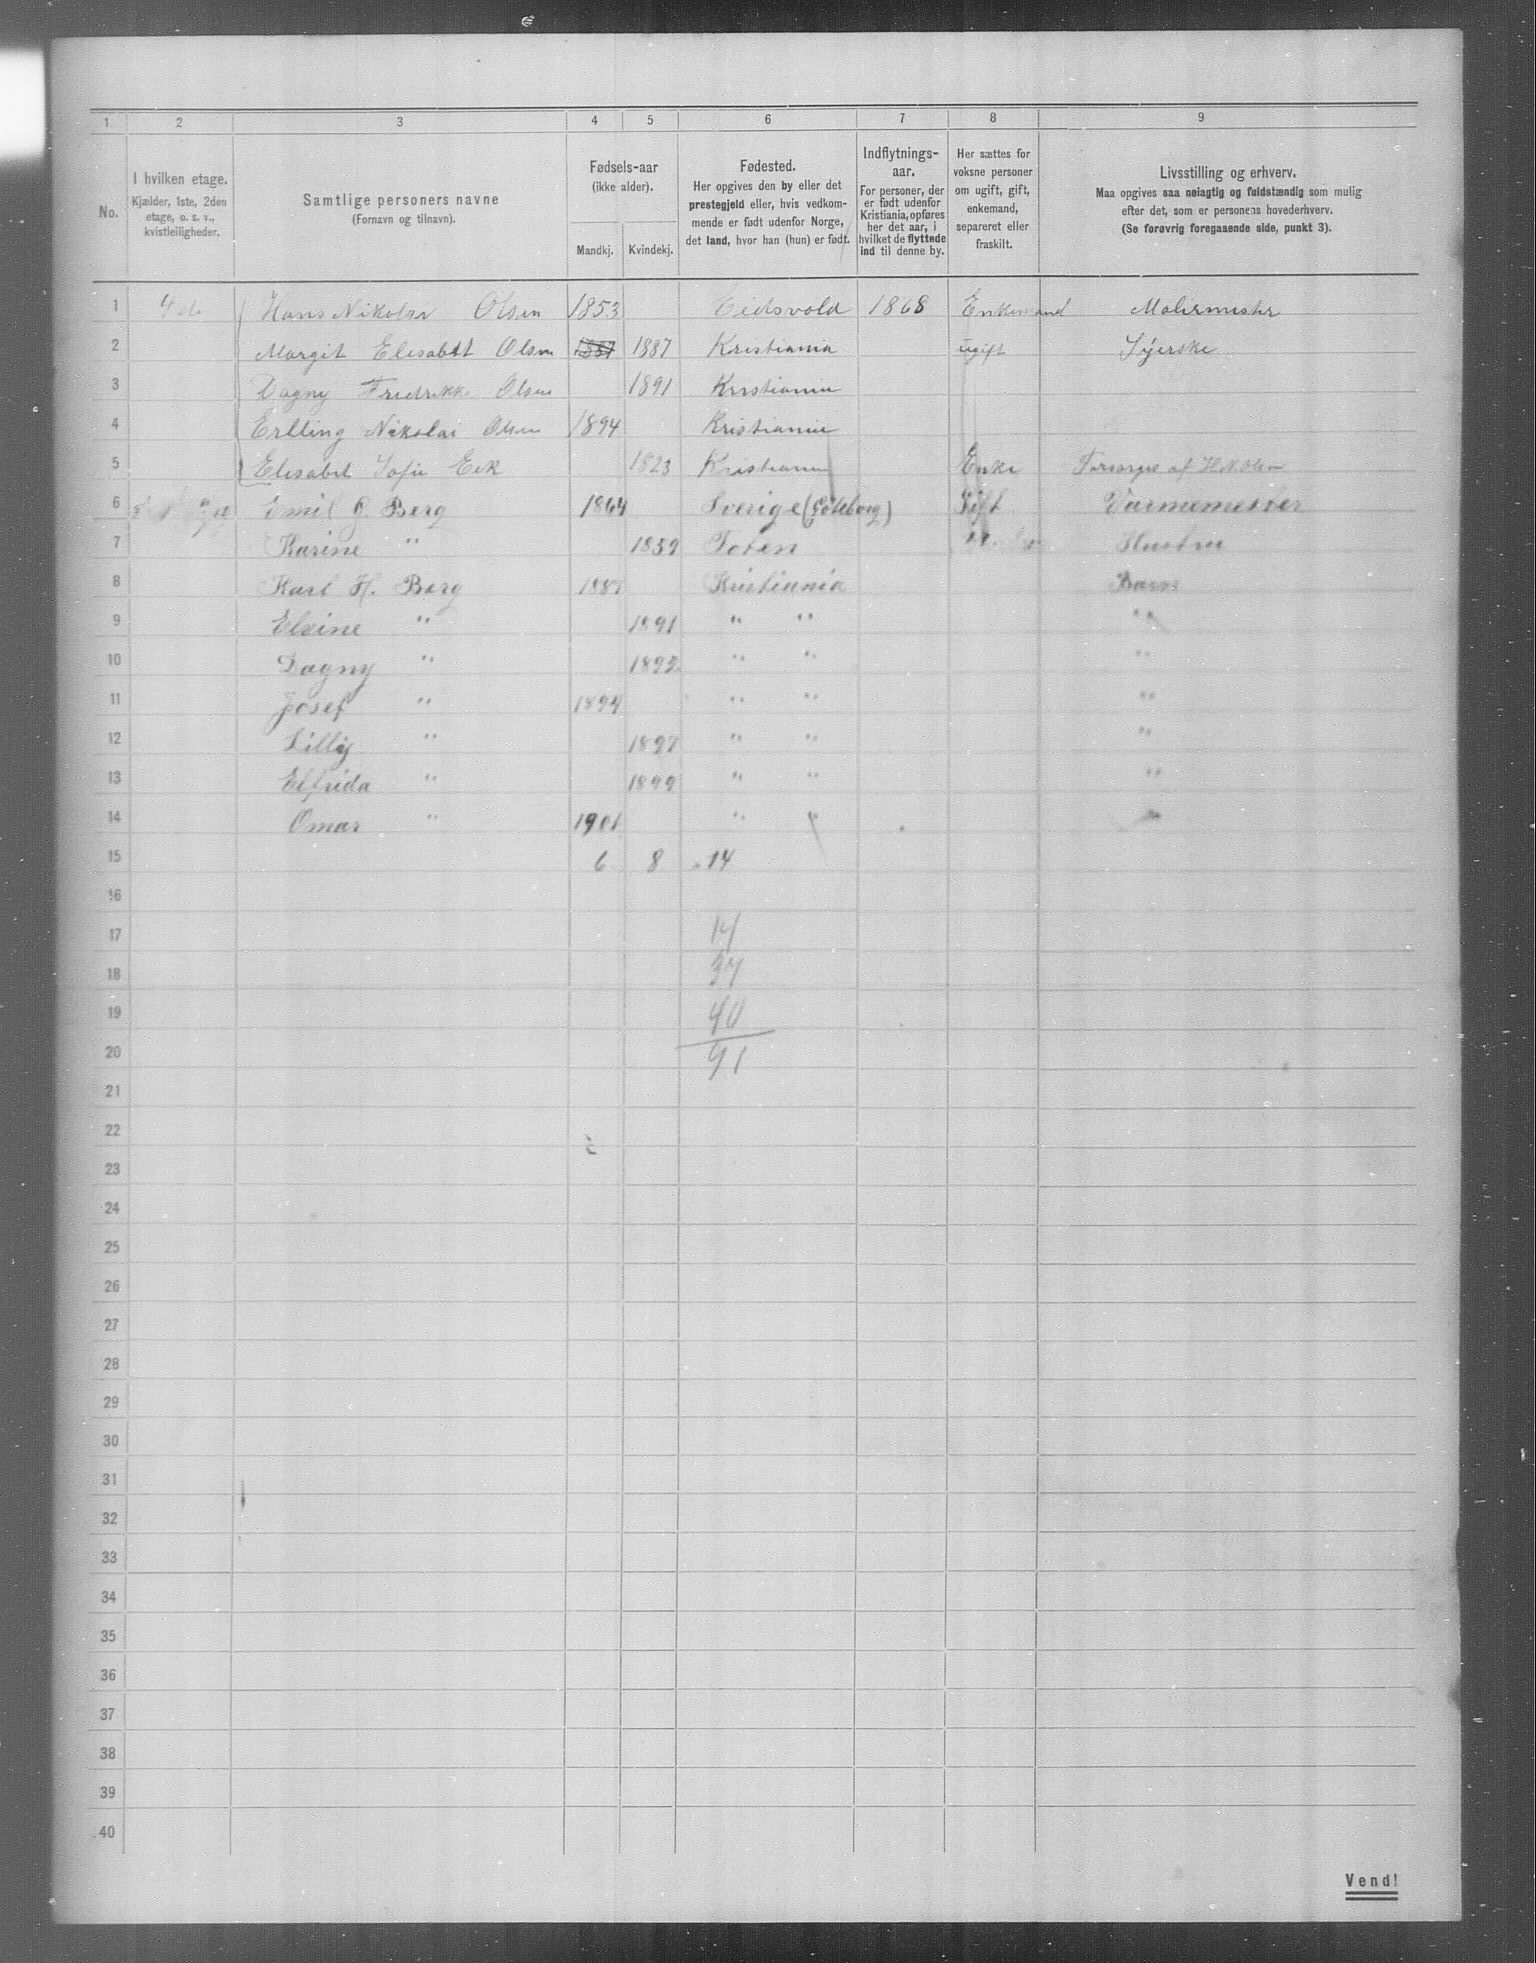 1 2 3 4 5 6 7 8 9
No.
I hvilken etage.
Kjælder, 1ste, 2den
etage, o. s. v.,
kvistleiligheder.
Samtlige personers navne
(Fornavn og tilnavn).
Fødsels-aar
(ikke alder).
Mandkj. Kvindekj.
Fødested.
Her opgives den by eller det
prestegjeld eller, hvis vedkom-
mende er født udenfor Norge,
det land, hvor han (hun) er født.
Indflytnings-
aar.
For personer, der
er født udenfor
Kristiania, opføres
her det aar, i
hvilket de flyttede
ind til denne by.
Her sættes for
voksne personer
om ugift, gift,
enkemand,
separeret eller
fraskilt.
Livsstilling og erhverv.
Maa opgives saa nøiagtig og fuldstændig som mulig
efter det, som er personens hovederhverv.
(Se forøvrig foregaaende side, punkt 3).
1 4de Hans Nikolai Olsen 1853 Eidsvold 1868 Enkemand Malermester
2 Margit Elisabet Olsen 1887 1887 Kristiania ugift Syerske
3 Dagny Fredrikke Olsen 1891 Kristiania
4 Erlling Nikolai Olsen 1894 Kristiania
5 Elisabet Sofie Eek 1823 Kristiania Enke Forsørges af H N Olsen
6 Emil G. Berg 1864 Sverige (Göteborg) Gift Varmemester
7 Karine " 1859 Toten Hustru
8 Karl H. Berg Kristiania Barn
9 Elvine " 1891 " " "
10 Dagny " " " "
11 Josef " 1894 " " "
12 Lilly " 1897 " " "
13 Elfrida " 1899 " " "
14 Omar " 1901 " " "
15 6 8 14
16
17 14
18 37
19 40
20 91
21
22
23
24
25
26
27
28
29
30
31
32
33
34
35
36
37
38
39
40
Vend!